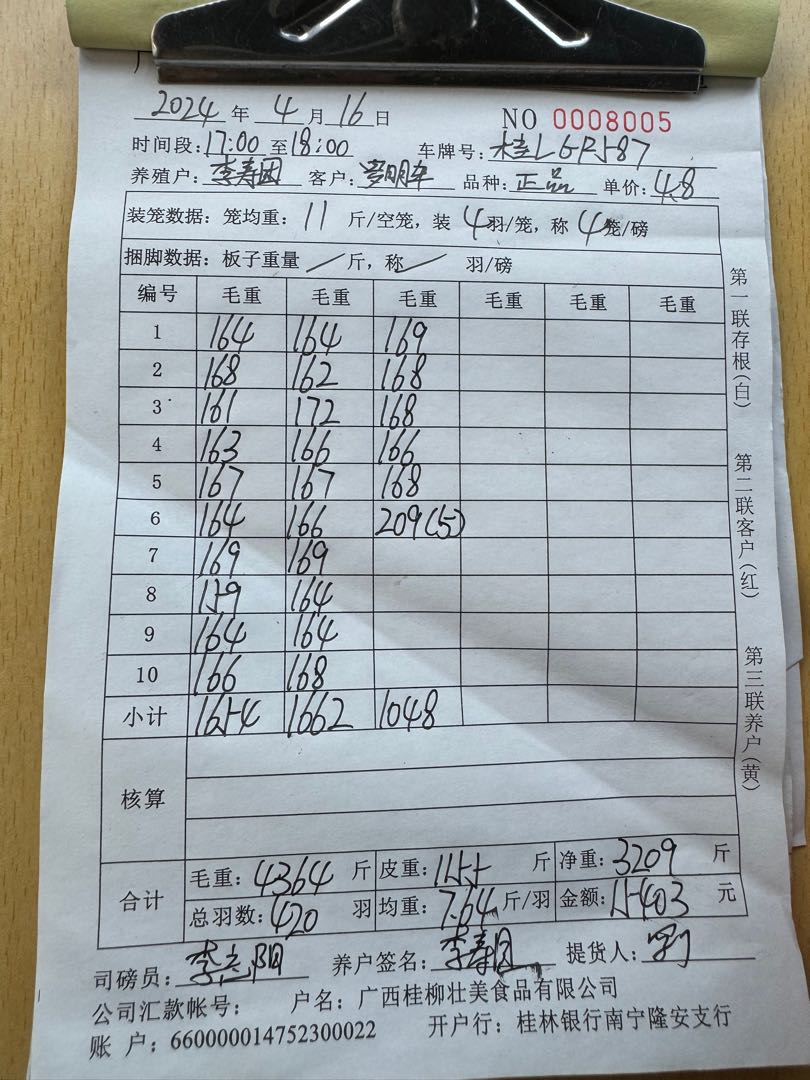 2024 年 4 月 16 日 NO 0008005
时间段: 17:00 至 18:00 车牌号: 桂L6P587
养殖户: 李寿团 客户: 品种: 正品 单价: 4.8
装笼数据: 笼均重: 11 斤/空笼, 装 4 羽/笼, 称 4 笼/磅
捆脚数据: 板子重量 / 斤, 称 / 羽/磅
编号 毛重 毛重 毛重 毛重 毛重 毛重
1 164 164 169
2 168 162 168
3 161 172 168
4 163 166 166
5 167 167 168
6 164 166 209(5)
7 169 169
8 159 164
9 164 164
10 166 168
小计 1654 1662 1048
核算
合计
毛重: 4364 斤 皮重: 1155 斤 净重: 3209 斤
总羽数: 420 羽 均重: 7.64 斤/羽 金额: 15403 元
司磅员: 李志阳 养户签名: 李寿团 提货人:
公司汇款帐号: 户名: 广西桂柳壮美食品有限公司
账 户: 660000014752300022 开户行: 桂林银行南宁隆安支行
第一联存根(白)
第二联客户(红)
第三联养户(黄)